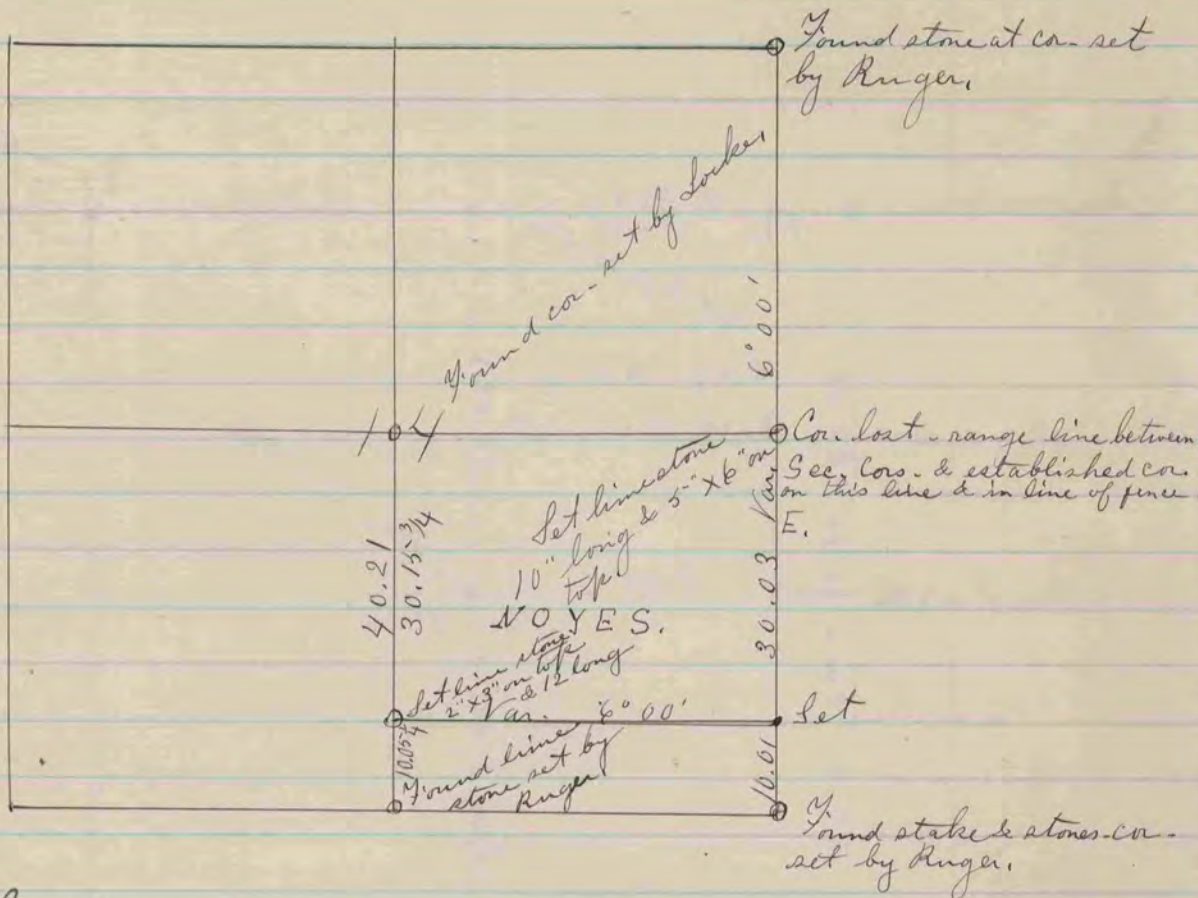 Found stone at cor- set
by Ruger.
Found cor- set by Locke.
6° 00'
14
Cor. lost - range line between
Sec. Cors. & established cor.
on this line & in line of fence
E.
Var.
Set limestone
10" long & 5" X 6" on
top.
40.21
30.15 3/4
NOYES.
30.03
Set lime stone
2" X 3" on top
& 12 long
Var. 6° 00'
Set
10.05 1/4
Found lime
stone set by
Ruger
10.01
Found stake & stones-cor-
set by Ruger.